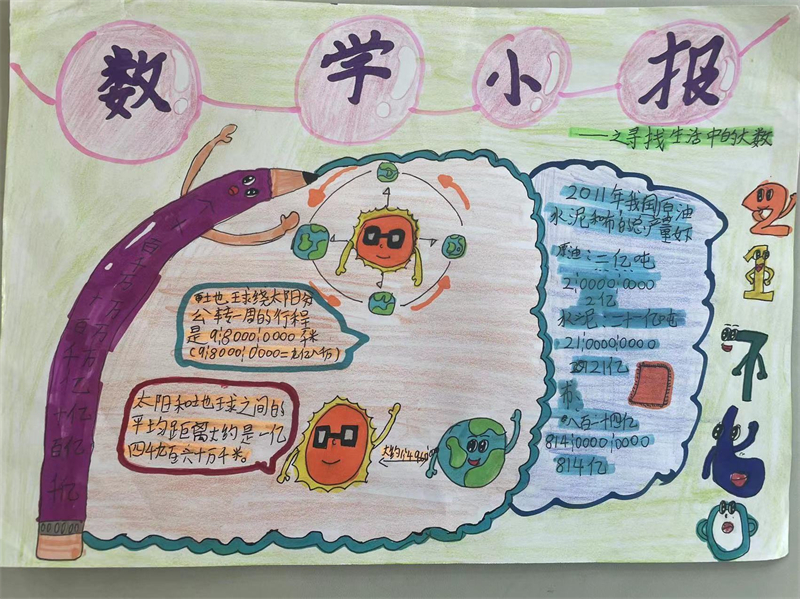 数学小报
——之寻找生活中的大数
个
十
百
千
万
十万
百万
千万
亿
十亿
百亿
千亿
地球绕太阳公
公转一周的行程
是9|8000|0000千米
(9|8000|0000=九亿八千万)
太阳和地球之间的
平均距离大约是一亿
四千九百六十万千米。
2011年我国石油
水泥和布的总产量如
原油:二亿吨
2|0000|0000
2亿
水泥:二十一亿吨
21|0000|0000
布:
八百一十四亿
814|0000|0000
814亿